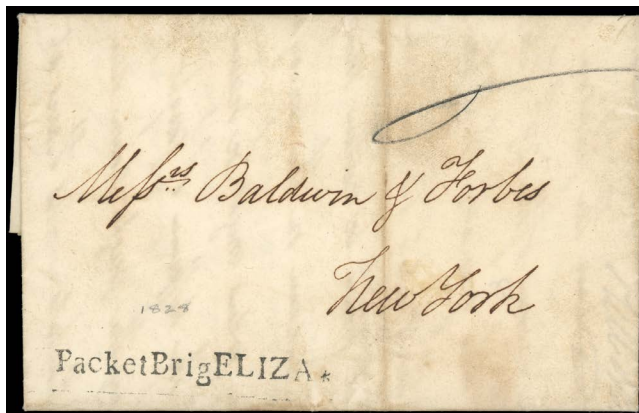 Messrs Baldwin & Forbes
New York
1828
PacketBrigELIZA*